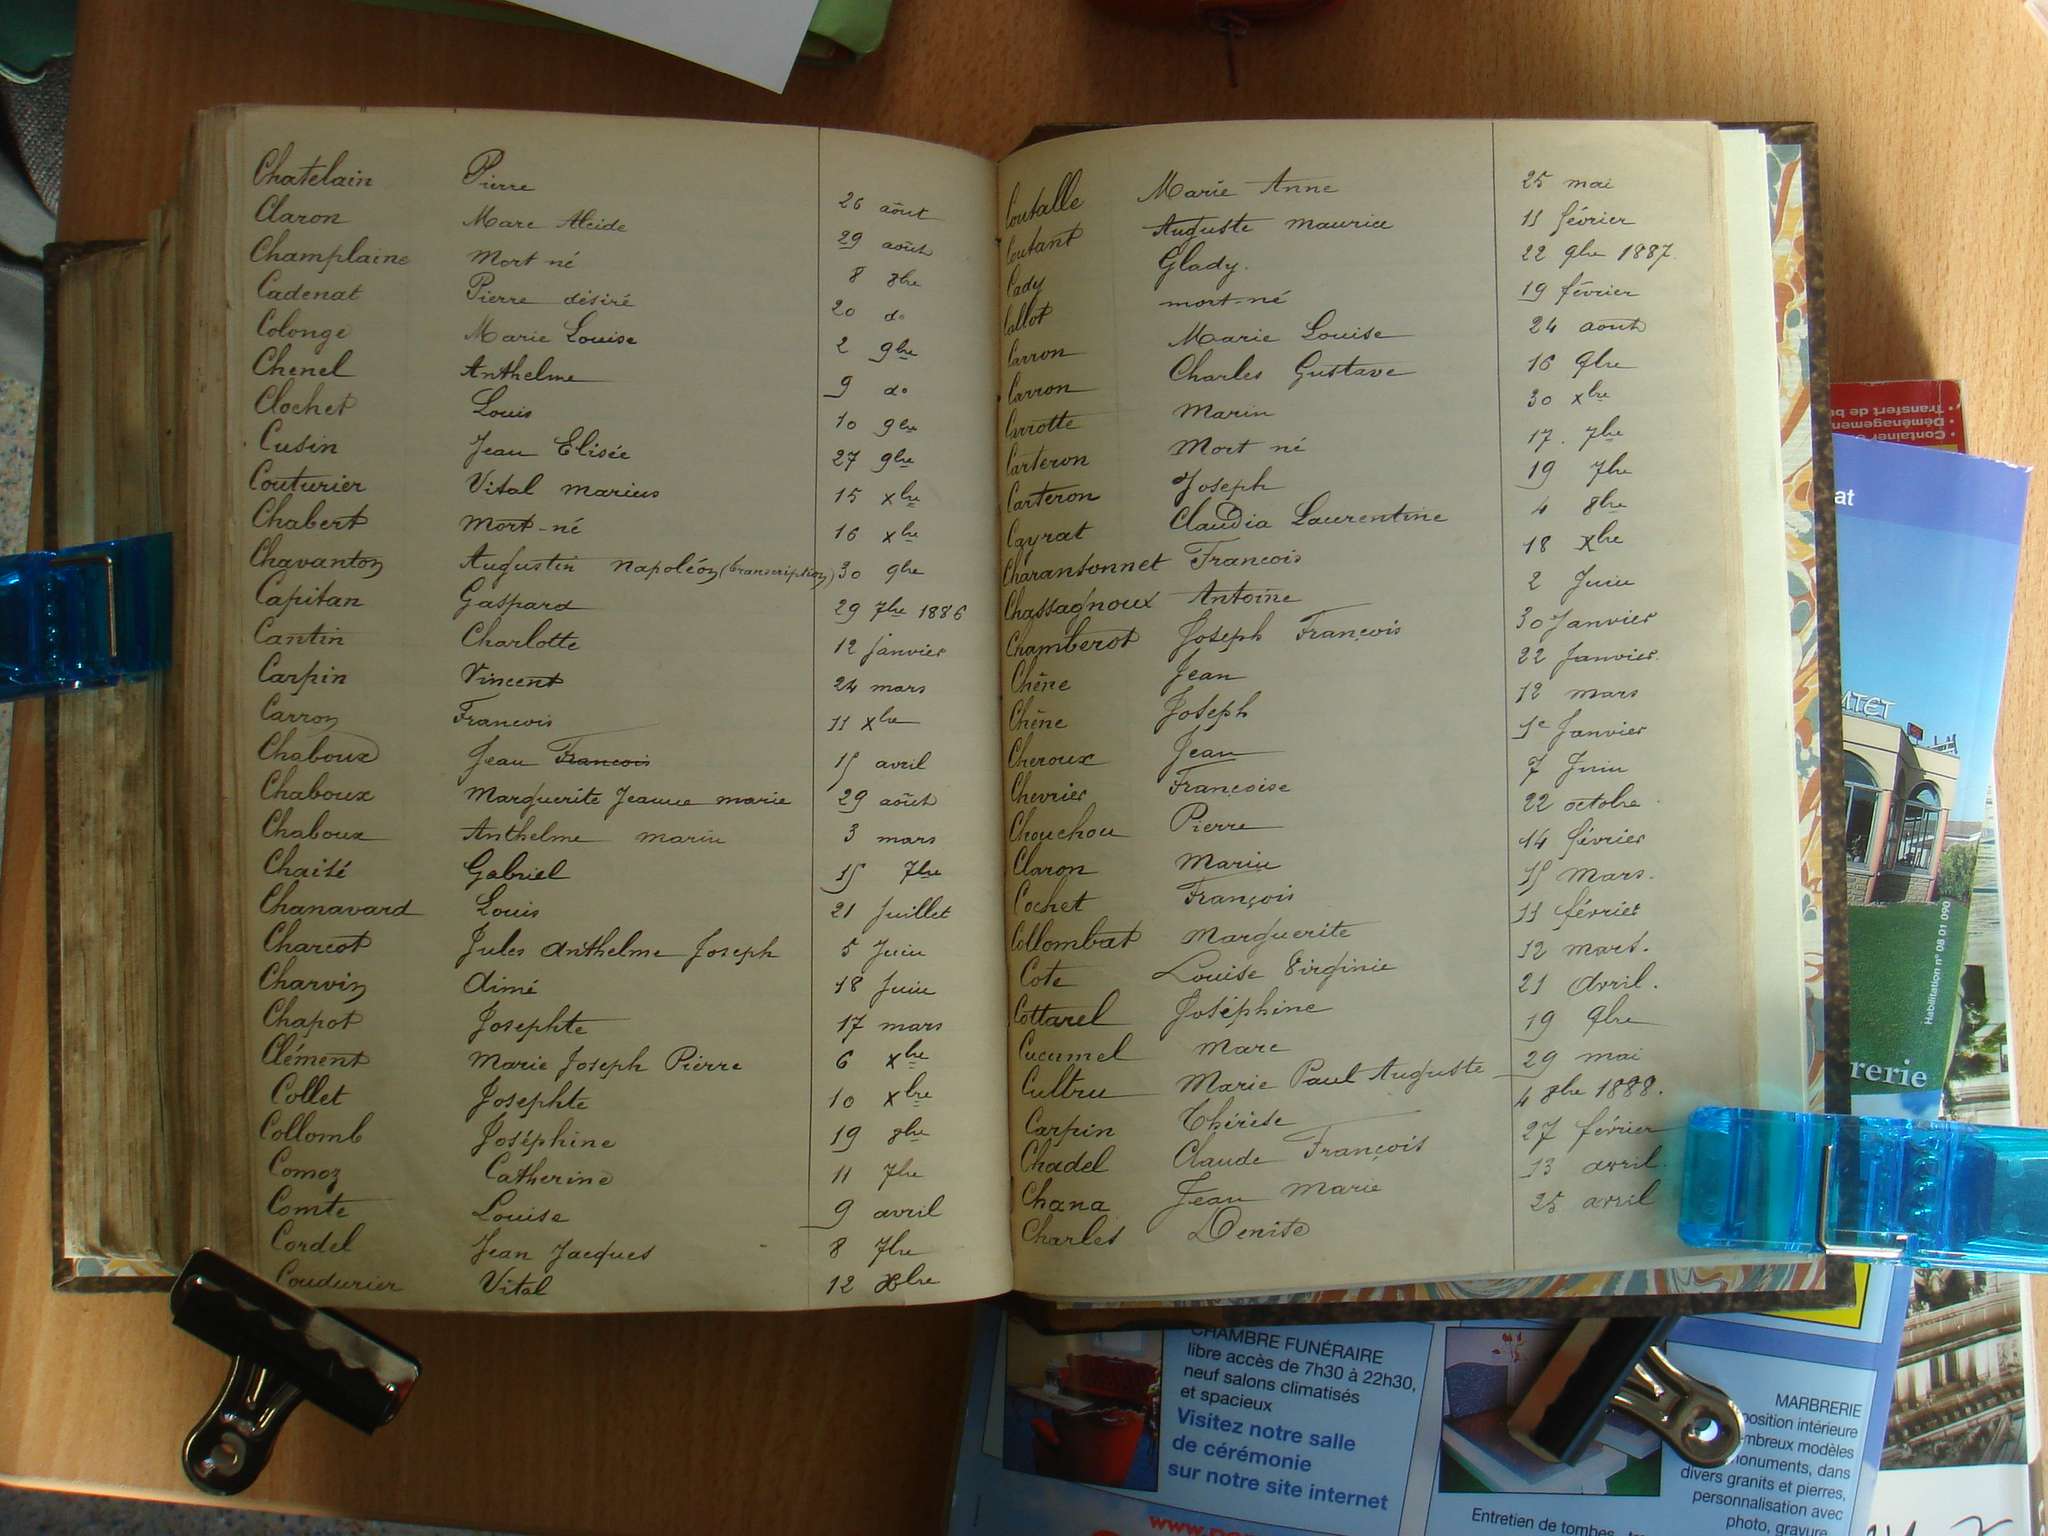 Chatelain Pierre 26 août
Claron Marc Alcide 29 août
Champlaine Mort né 8 8bre
Cadenat Pierre désiré 20 do
Colonge Marie Louise 2 9bre
Chenel Anthelme 9 do
Clochet Louis 10 9bre
Cusin Jean Elisée 27 9bre
Couturier Vital marius 15 xbre
Chabert Mort-né 16 xbre
Chavanton Augustin Napoléon (transcription) 30 9bre
Capitan Gaspard 29 7bre 1886
Cantin Charlotte 12 janvier
Carpin Vincent 24 mars
Carron Francois 11 xbre
Chaboux Jean Francois 15 avril
Chaboux Marguerite Jeanne marie 29 août
Chaboux Anthelme marin 3 mars
Chaisé Gabriel 15 7bre
Chanavard Louis 21 Juillet
Charcot Jules Anthelme Joseph 5 Juin
Charvin Aimé 18 Juin
Chapot Josephte 17 mars
Clément Marie Joseph Pierre 6 xbre
Collet Josephte 10 xbre
Collomb Joséphine 19 8bre
Comoz Catherine 11 7bre
Comte Louise 9 avril
Cordel Jean Jacques 8 7bre
Coudurier Vital 12 xbre
Coutalle Marie Anne 25 mai
Coutant Auguste maurice 11 février
Cady Glady. 22 9bre 1887.
Collot mort-né 19 février
Carron Marie Louise 24 août
Carron Charles Gustave 16 9bre
Carrotte Marin 30 xbre
Carteron Mort né 17. 7bre
Carteron Joseph 19 7bre
Cayrat Claudia Laurentine 4 8bre
Charantonnet Francois 18 xbre
Chassagnoux Antoine 2 Juin
Chamberot Joseph François 30 Janvier
Chêne Jean 22 Janvier.
Chêne Joseph 12 mars
Cheroux Jean 1e Janvier
Chevrier Françoise 7 Juin
Chouchou Pierre 22 octobre
Claron Marin 14 février
Cochet François 15 mars.
Collombat Marguerite 11 février
Cote Louise Virginie 12 mars.
Cottarel Joséphine 21 avril.
Cucumel Marc 19 9bre
Cultru Marie Paul Auguste 29 mai
Carpin Thérèse 4 8bre 1888.
Chadel Claude François 27 février
Chana Jean Marie 13 avril.
Charles Denise 25 avril
• Container
Déménagement
• Transfert de
at
MTET
Habilitation n° 08 01 090
rerie
CHAMBRE FUNÉRAIRE
libre accès de 7h30 à 22h30,
neuf salons climatisés
et spacieux
Visitez notre salle
de cérémonie
sur notre site internet
MARBRERIE
position intérieure
mbreux modèles
onuments, dans
divers granits et pierres,
personnalisation avec
photo, gravure
Entretien de tombes